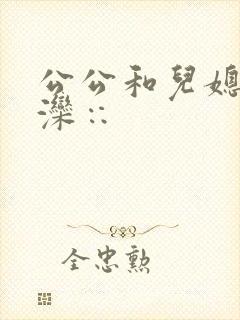 公公和兒媳
灤::
全忠勲